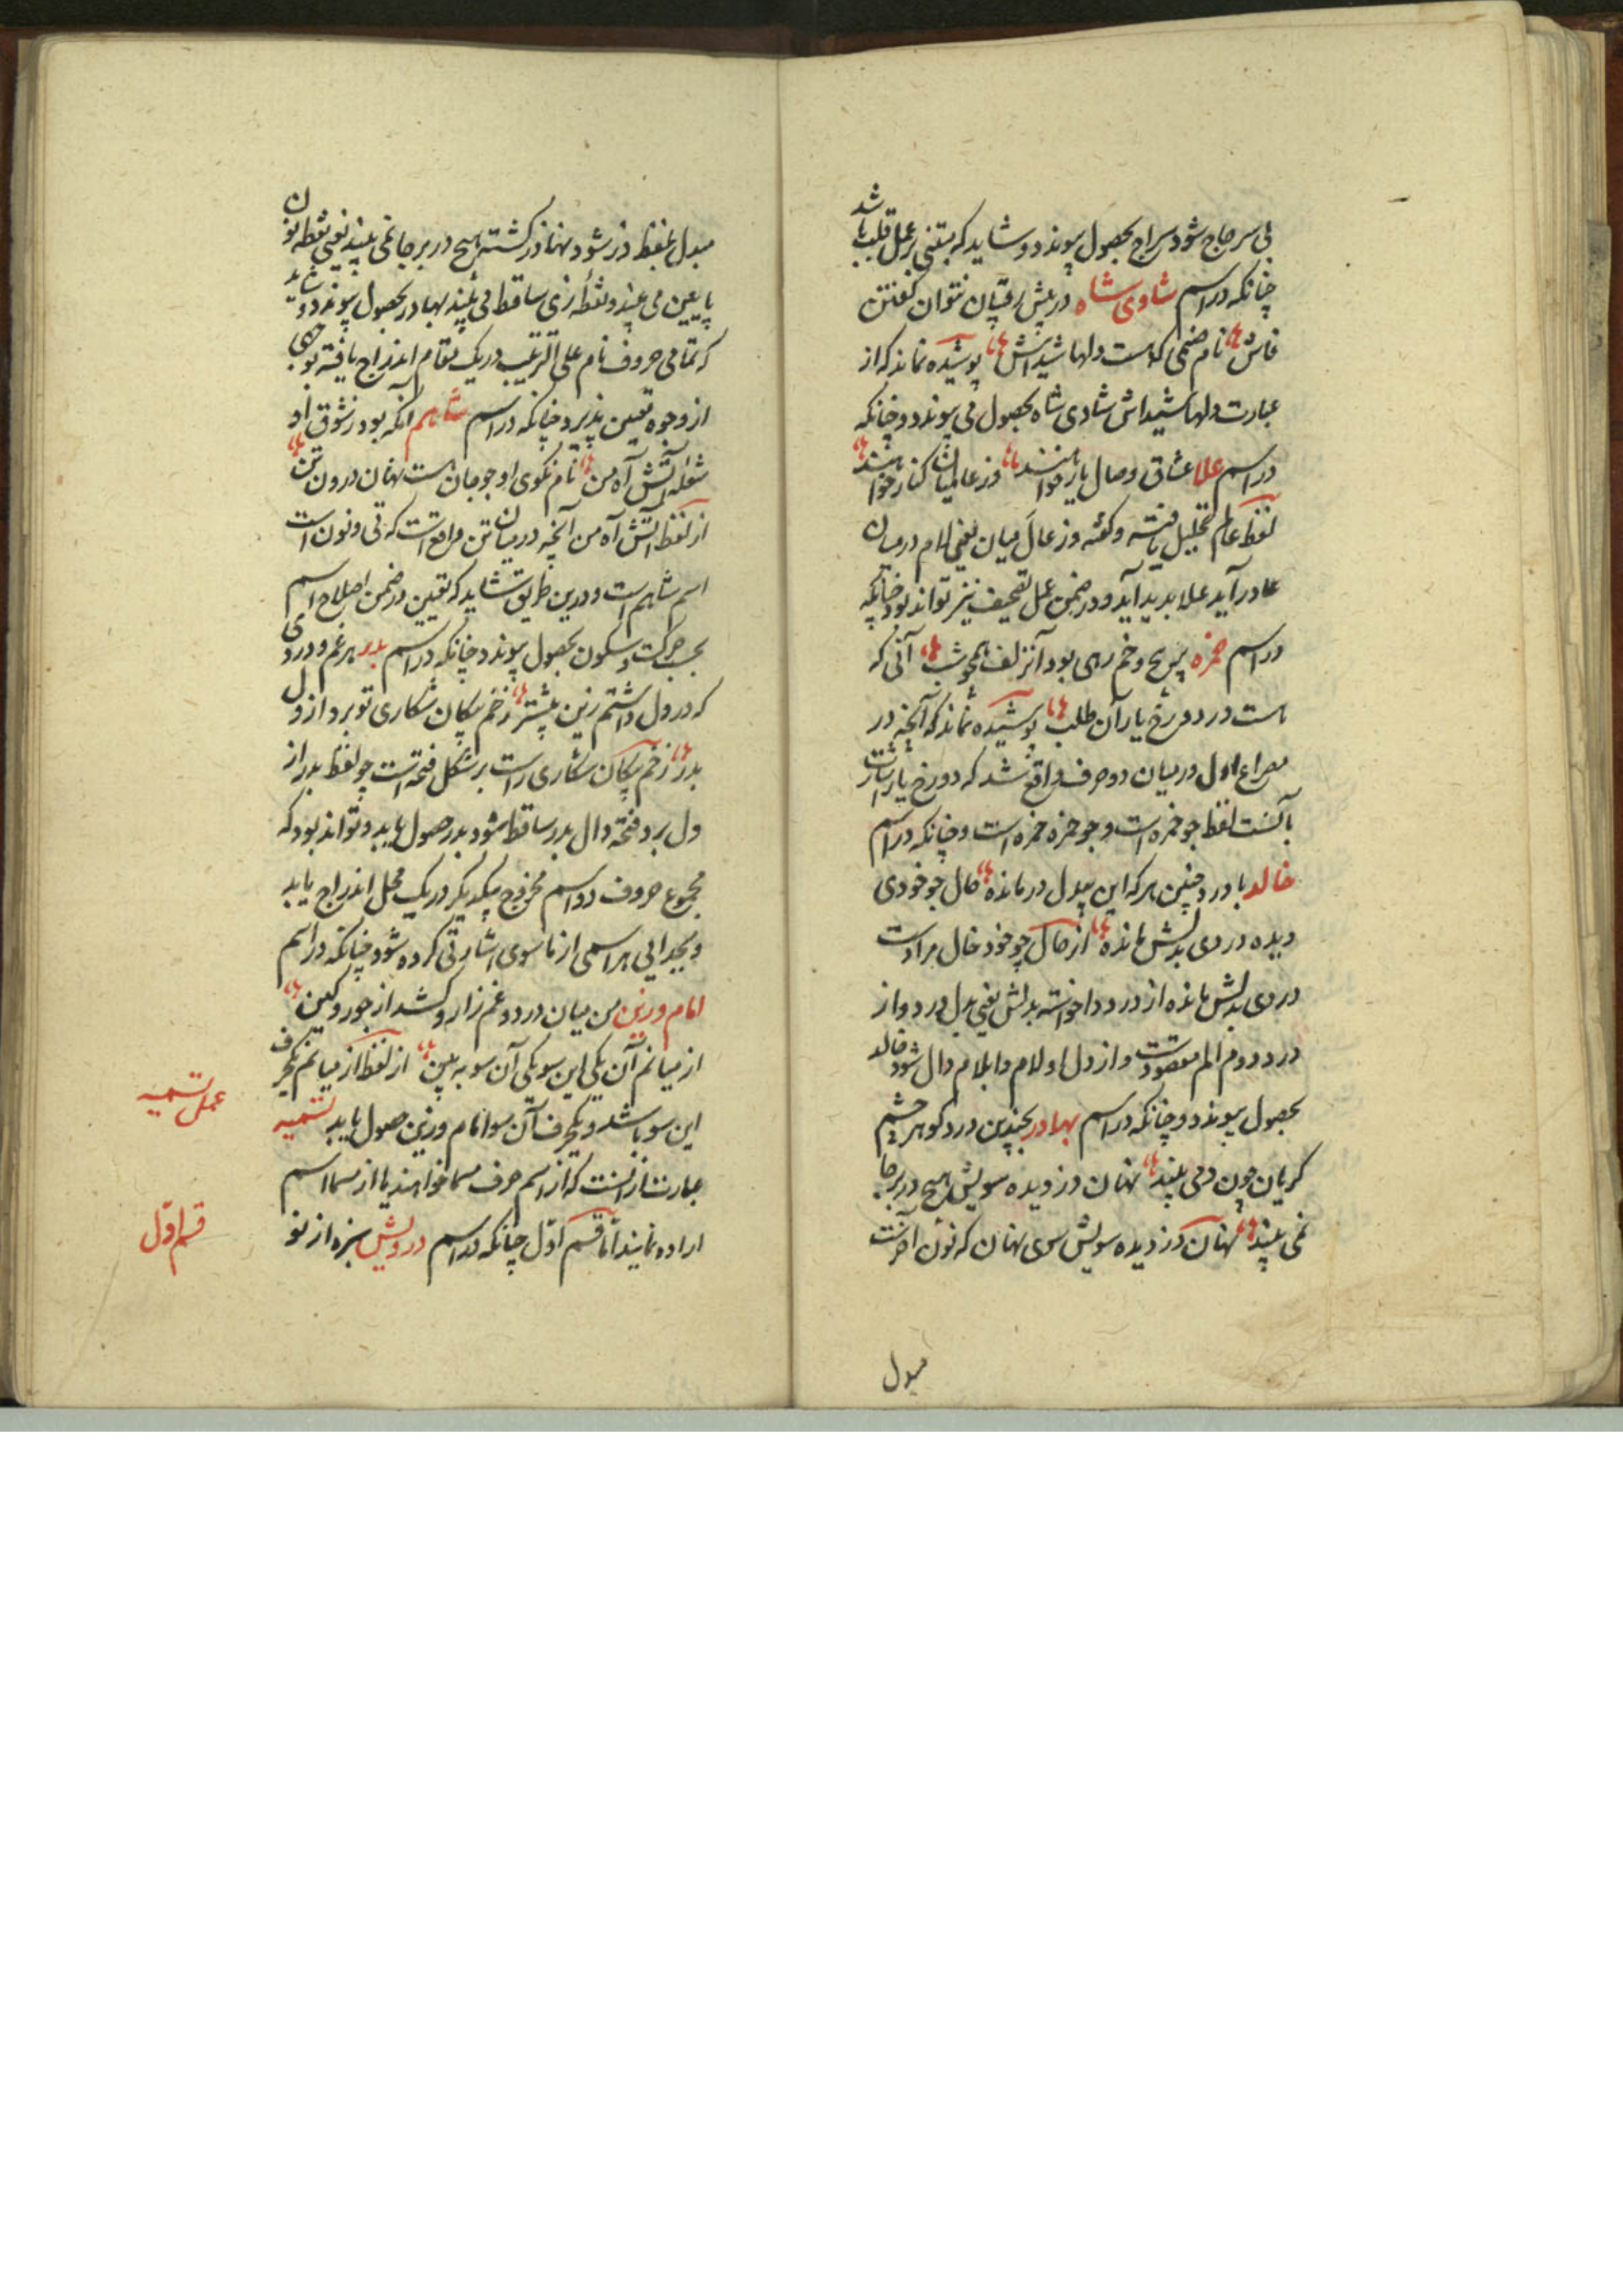 بی سر جاج شود سراج بحصول پیوندد و شاید که مبتنی بر عمل قلب باشد
چنانکه در اسم شادی شاه در پیش رقیبان نتوان گفتن
فاش نام صنمی که هست دلها شیداش پوشیده نماند که از
عبارت دلها شیداش شادی شاه بحصول می پیوندد و چنانکه
در اسم علا عشاق وصال یار خواهند وز عالمیان کنار خواهند
لفظ عالم تحلیل یافته و گفته وز عال میان یعنی لام در میان
عا در آید علا بدید آید و در ضمن عمل تصحیف نیز تواند بود چنانکه
در اسم حمزه پیچ و خم رهی بود آنزلف همچو شب آنی که
هست در دو رخ یار آن طلب پوشیده نماند که آنچه در
مصراع اول در میان دو حرف واقع شد که دو رخ یار اشارت
بآنست لفظ چو خمره است و چو حمزه حمزه است و چنانکه در اسم
خالد با درد چنین هر که این بیدل در مانده حال چو خودی
دیده دردی بدلش مانده از حال چو خود خال مراد است
دردی بدلش مانده از درد دا خواسته بدلش یعنی بدل درد و از
درد دوم الم مقصود است و از دل او لام و ابلام دال شود خالد
بحصول پیوندد و چنانکه در اسم بهادر بچندین درد کو هر چشم
گریان چون دمی بیند نهان دز دیده سویش هیچ در بر جا
نمی بیند نهان دز دیده سویش سوی نهان که نون آخرست
مبدل
مبدل بلفظ دز شود نهادز گشته هیچ در بر جا نمی بیند یعنی نقطه نون
پایین می بیند و نقطه زی ساقط می بیند بهادر بحصول پیوندد و شاید
که تمامی حروف نام علی الترتیب در یک مقام اندراج یافته بوجهی
از وجوه تعین پذیرد چنانکه در اسم شاهم آنکه بود ز شوق او
شعله آتش آه من نام نکوی او چو جان هست نهان درون تن
از لفظ آتش آه من آنچه در میان تن واقع است که تی و نون است
اسم شاهم است و درین طریق شاید که تعین در ضمن اصلاح اسم
بحسب حرکت و سکون بحصول پیوندد چنانکه در اسم بدر هر غم و دردی
که در دل داشتم زین پیشتر زخم پیکان شکاری تو برد از دل
بدر زخم پیکان شکاری راست بر شکل فتحه است چو لفظ بدر از
دل برد فتحه دال بدر ساقط شود بدر حصول یابد و تواند بود که
مجموع حروف دو اسم ممزوج بیکدیگر در یک محل اندراج یابد
و بجدایی هر اسمی از ماسوی اشارتی کرده شود چنانکه در اسم
امام و زین من میان درد و غم زار و کشد از جور و کین
از میانم آن یکی این سو یکی آن سو ببین از لفظ از میانم یکحرف
این سو باشد و یکحرف آن سو امام و زین حصول یابد تسمیه
عبارت از آنست که از اسم حرف مسما خواهند یا از مسما اسم
اراده نمایند اما قسم اول چنانکه در اسم درویش سبزه از نو
عمل تسمیه
قسم اول